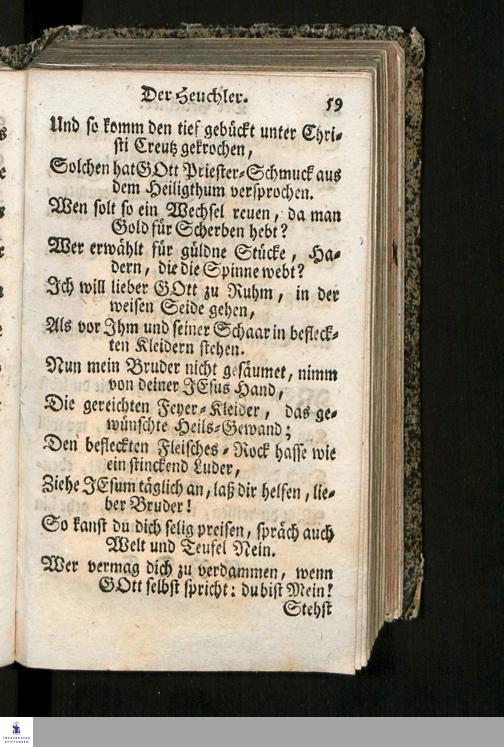 Der Heuchler. 59
Und so komm den tief gebückt unter Chri-
sti Creutz gekrochen,
Solchen hat GOtt Priester-Schmuck aus
dem Heiligthum versprochen.
Wen solt so ein Wechsel reuen, da man
Gold für Scherben hebt?
Wer erwählt für güldne Stücke, Ha-
dern, die die Spinne webt?
Ich will lieber GOtt zu Ruhm, in der
weisen Seide gehen,
Als vor Ihm und seiner Schaar in befleck-
ten Kleidern stehen.
Nun mein Bruder nicht gesäumet, nimm
von deiner JEsus Hand,
Die gereichten Feyer-Kleider, das ge-
wünschte Heils-Gewand;
Den befleckten Fleisches-Rock hasse wie
ein stinckend Luder,
Ziehe JEsum täglich an, laß dir helfen, lie-
ber Bruder!
So kanst du dich selig preisen, spräch auch
Welt und Teufel Nein.
Wer vermag dich zu verdammen, wenn
GOtt selbst spricht: du bist Mein!
Stehst